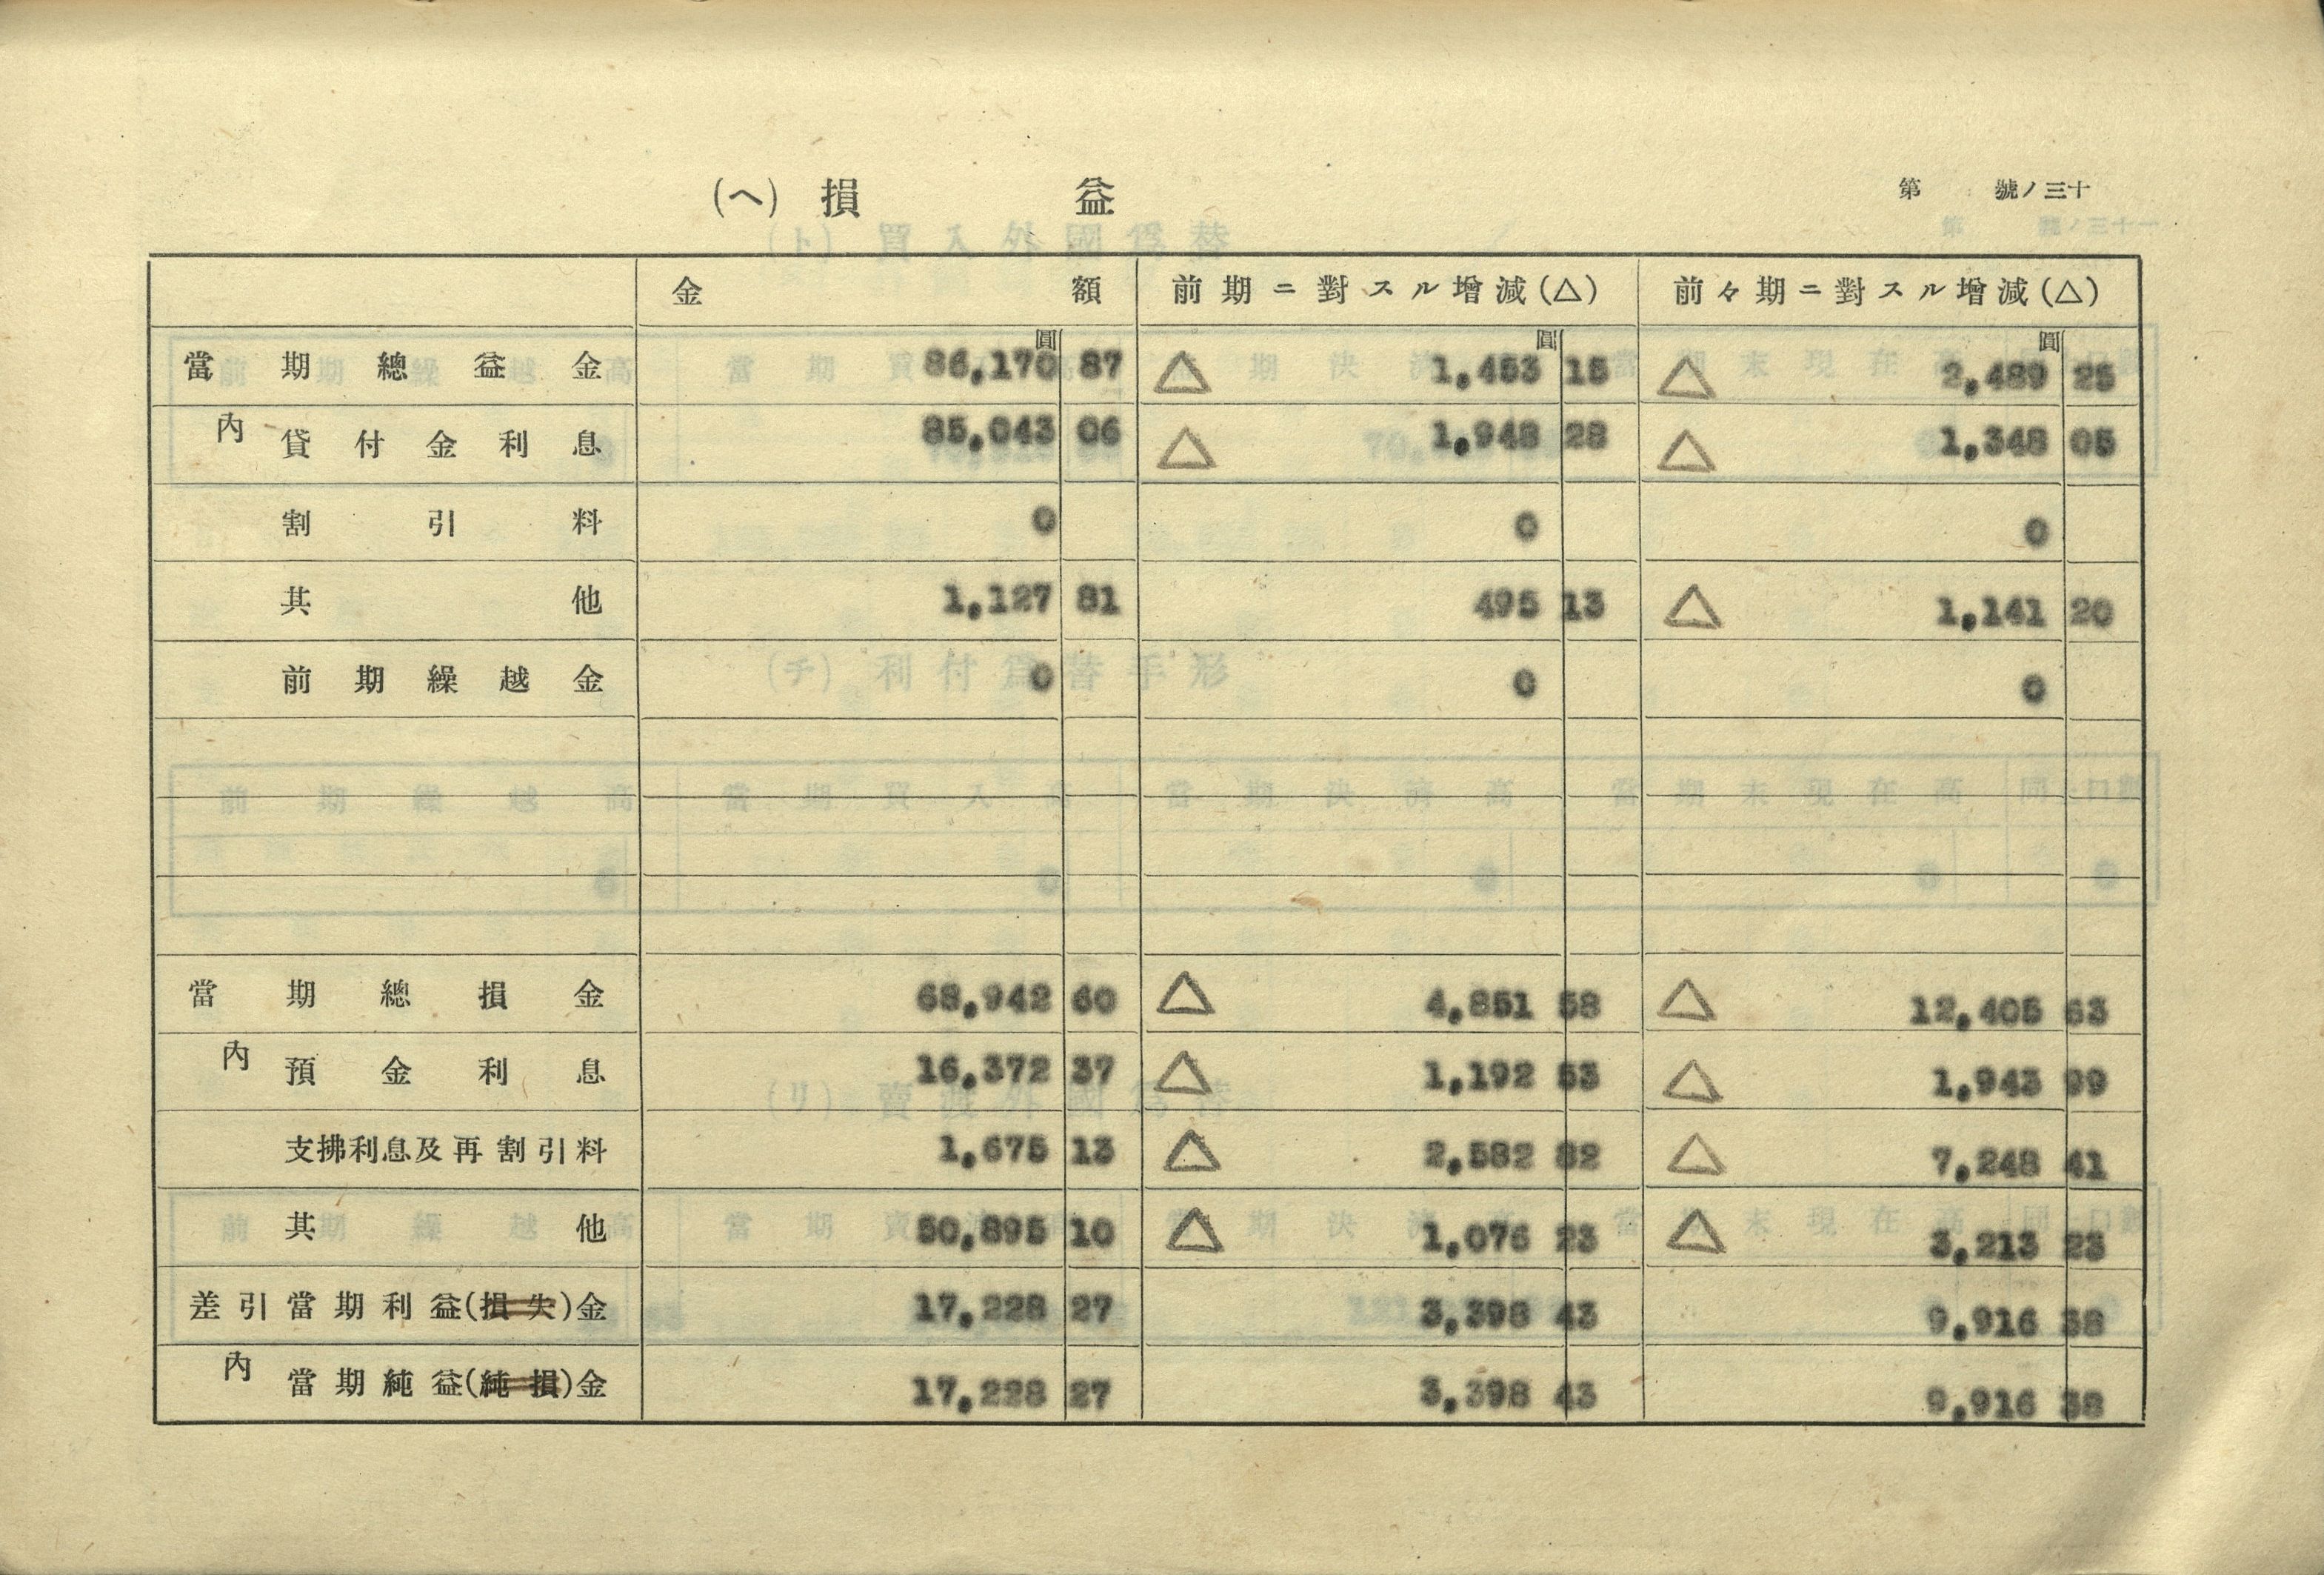 (ヘ) 損 益
第 號ノ三十
金 額 前期ニ對スル增減(△) 前々期ニ對スル增減(△)
圓 圓 圓
當期總益金 86,170 87 △ 1,453 15 △ 2,489 25
內 貸付金利息 85,043 06 △ 1,948 28 △ 1,348 05
割引料 0 0 0
其他 1,127 81 495 13 △ 1,141 20
前期繰越金 0 0 0
當期總損金 68,942 60 △ 4,851 58 △ 12,405 63
內 預金利息 16,372 37 △ 1,192 53 △ 1,943 99
支拂利息及再割引料 1,675 13 △ 2,582 82 △ 7,248 41
其他 50,895 10 △ 1,076 23 △ 3,213 23
差引當期利益(損失)金 17,228 27 3,398 43 9,916 38
內 當期純益(純損)金 17,228 27 3,398 43 9,916 38